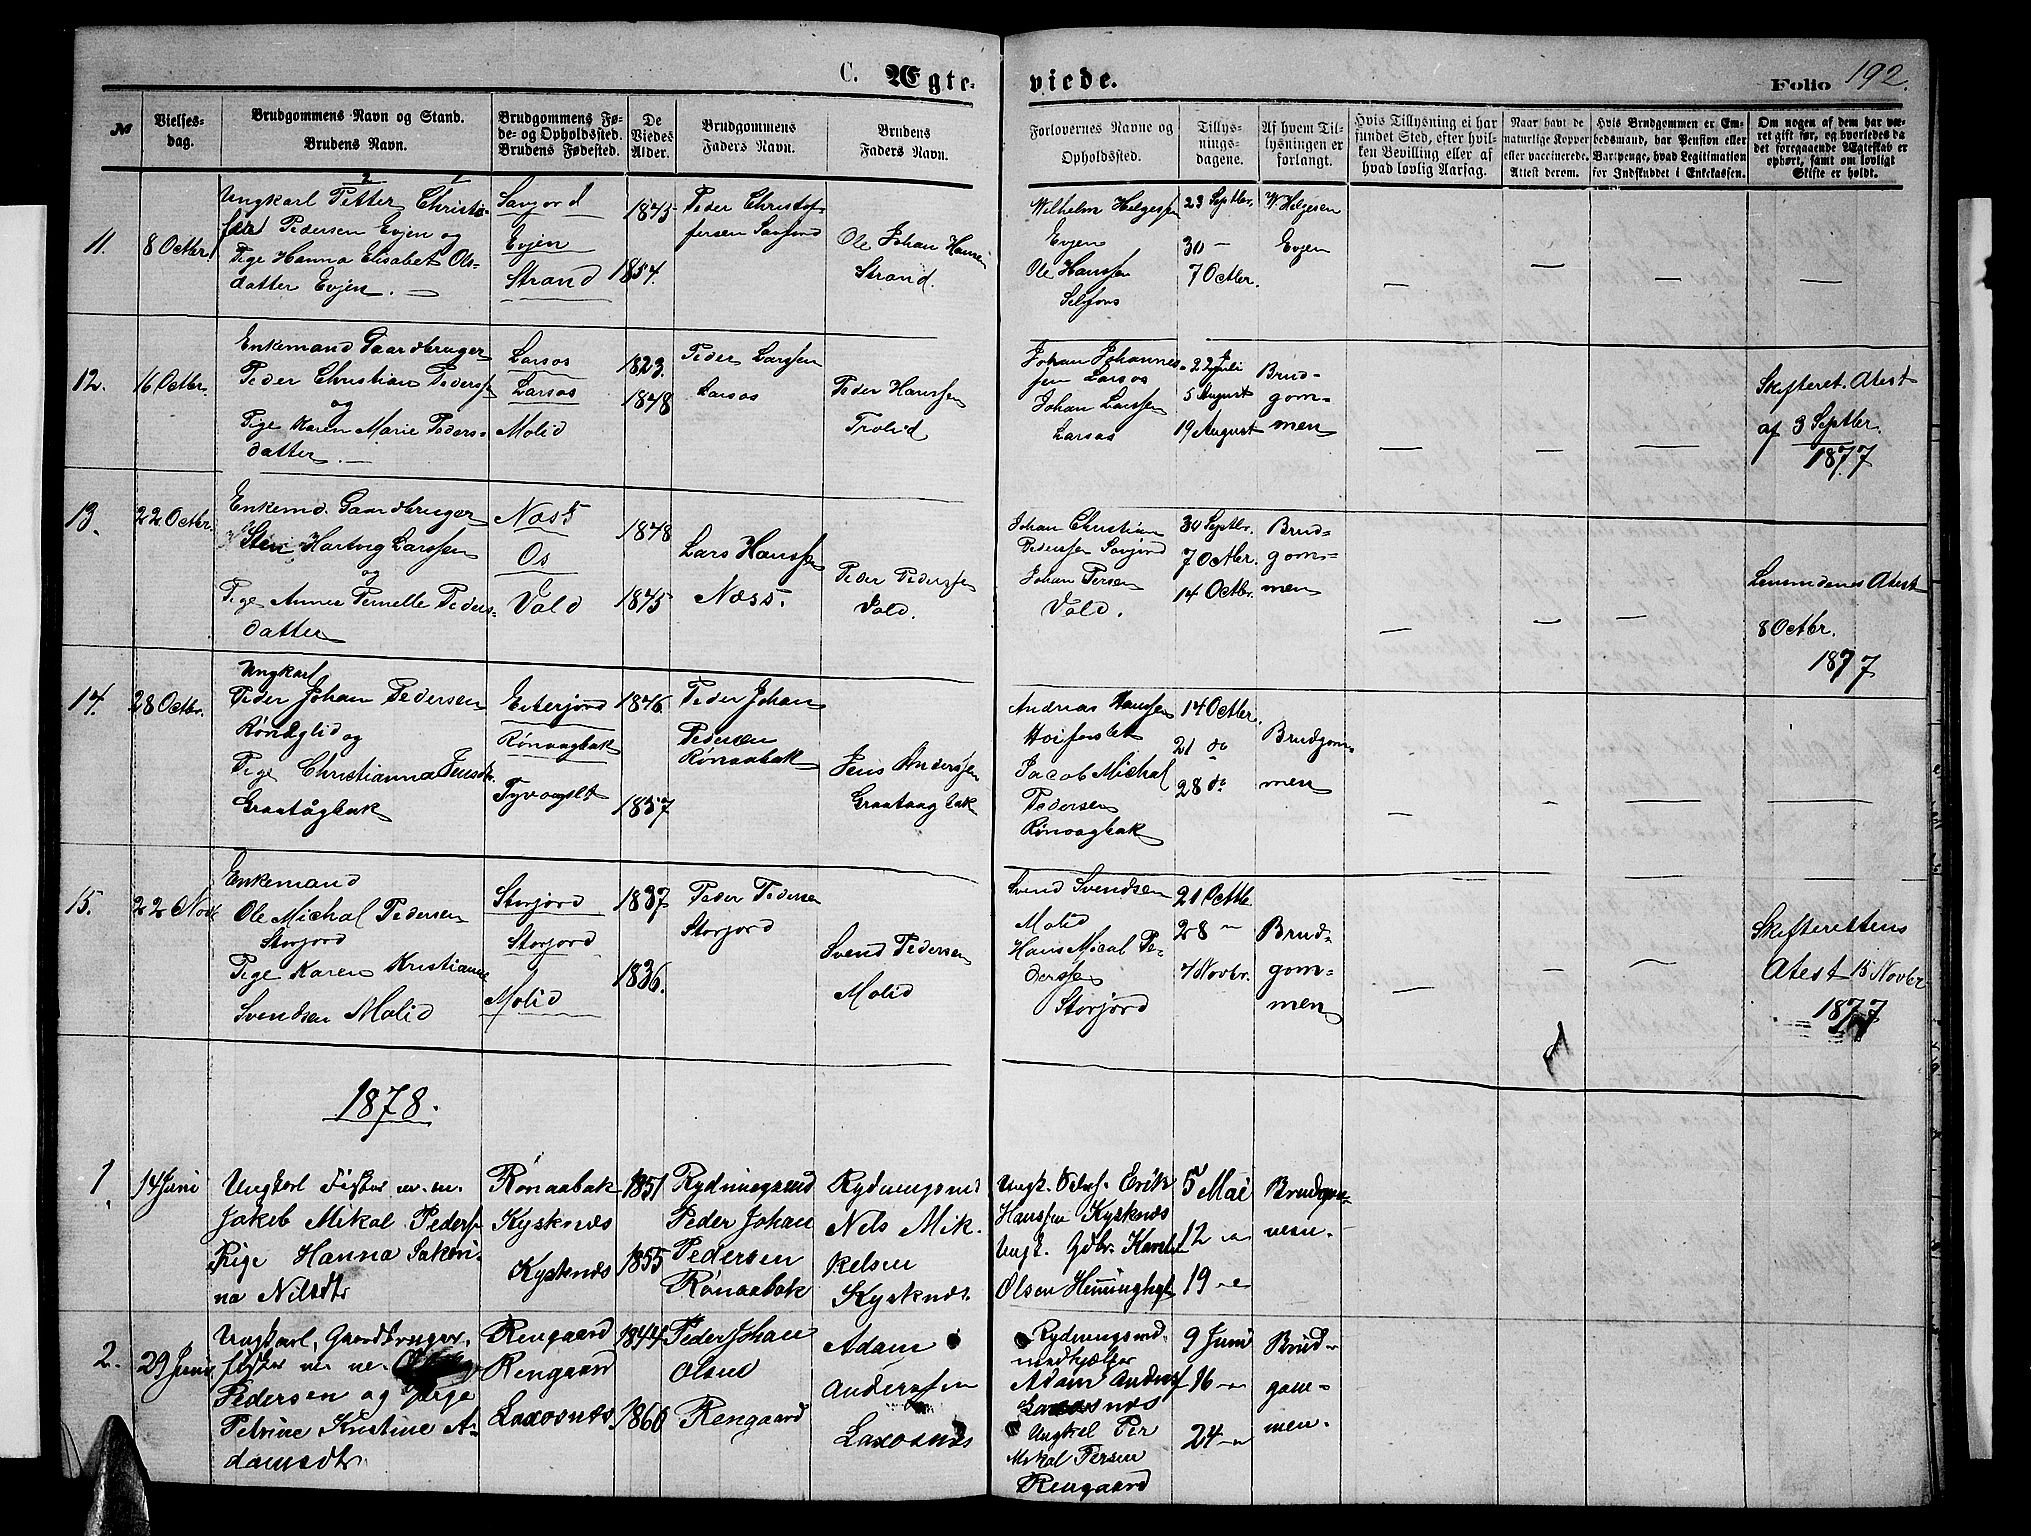 C. Ægte-
viede.
Folio 192.
No
Vielses-
dag.
Brudgommens Navn og Stand.
Brudens Navn.
Brudgommens Fø-
de- og Opholdssted.
Brudens Fødested.
De
Viedes
Alder.
Brudgommens
Faders Navn.
Brudens
Faders Navn.
Forlovernes Navne og
Opholdssted.
Tillys-
nings-
dagene.
Af hvem Til-
lysningen er
forlangt.
Hvis Tillysning ei har
fundet Sted, efter hvil-
ken Bevilling eller af
hvad lovlig Aarsag.
Naar havt de
naturlige Kopper
eller vaccinerede.
Attest derom.
Hvis Brudgommen er Em-
bedsmand, har Pension eller
Vartpenge, hvad Legitimation
for Indskuddet i Enkekassen.
Om nogen af dem har væ-
ret gift før, og hvorledes da
det foregaaende Ægteskab er
ophørt, samt om lovligt
Skifte er holdt.
11.
8 Octbr.
Ungkarl Petter Christo-
Pedersen Evjen og
Pige Hanna Elisabet Ols-
datter Evjen. —
Savjord
Evjen
Strand
1845
1854.
Peder Christof-
fersen Savjord
Ole Johan Hansen
Strand.
Wilhelm Helgesen
Evjen
Ole Hanssen
Selfors
23 Septbr.
30 —
7 Octbr.
W. Helgesen
Evjen
— — — —
12.
16 Octbr.
Enkemand Gaardbruger
Peder Christian Pedersen
og
Pige Karen Marie Peders-
datter. —
Larsos
Larsos
Molid
1823.
1848
Peder Larssen
Larsos
Peder Hanssen
Trolid
Johan Johannes-
sen Larsos
Johan Larssen
Larsos
22 Juli
5 August
19 August
Brud-
gom-
men
— — —
Skifteret. Atest
af 3 Septbr.
1877
13.
22 Octbr.
Enkemd. Gaardbruger
Sten Hartvig Larssen
og
Pige Anne Pernelle Peders-
datter
Næss
Os
Vold
1848
1845
Lars Hanssen
Næss.
Peder Pederssen
Vold.
Johan Christian
Pederssen Savjord
Johan Persen
Vold.
30 Septbr.
7 Octbr.
14 Octbr.
Brud-
gom-
men
— — —
Atest
8 Octbr.
1877
14.
28 Octbr.
Ungkarl
Peder Johan Pedersen
og
Pige Christianna Jensdtr.
Graatågbak
Esterjord
Rønaagbak
1846
1857
Peder Johan
Pedersen
Rønaabak
Jens Anderssen
Graataagbak
Andreas Hanssen
Jacob Michal
Pedersen
Rønaagbak
14 Octbr.
21 do
28 do
Brudgom-
men
— — — —
15.
22 Novbr
Enkemand
Ole Michal Pedersen
Storjord
Pige Karen Kristianne
Svendsen Molid
Storjord
Storjord
Molid
1837
1836.
Peder Pedersen
Storjord
Svend Pedersen
Molid
Svend Svendsen
Molid
Hans Mical Pe-
derssen
Storjord
21 Octbr
28 —
4 Novbr.
Brud-
gom-
men
— — —
Skifterettens
Atest 15 Novbr
1877
1878.
1.
14 Juni
Ungkarl Fisker m. m.
Jakob Mikal Peders.
Pige Hanna Jakobi-
na Nilsdtr
Rønaabak
Kysknæs
Kysknæs
1851
1855
Rydningsmd
Peder Johan
Pedersen
Rønaabak
Rydningsmd
Nels Mik-
kelsen
Kysknæs.
Ungk. Erik
Hanssen Kysknæs
Ungk. Gdbr. Karel
Olsen
5 Mai
12 —
19 —
Brudgom-
men.
2.
29 Juni
Ungkarl, Gaardbruger,
fisker m. m.
Pedersen og Pige
Petrine Kristine A-
damsdtr.
Rengaard
Rengaard
Laxosnæs
1844
1860
Peder Johan
Olsen
Rengaard
Adam
Anderssen
Laxosnæs
Rydningsmd.
medhjelper
Adam Anders.
Laxosnæs
Ungkal Per
Mikal Persen
Rengaard
9 Juni
16 —
24 —
Brud-
gom-
men.